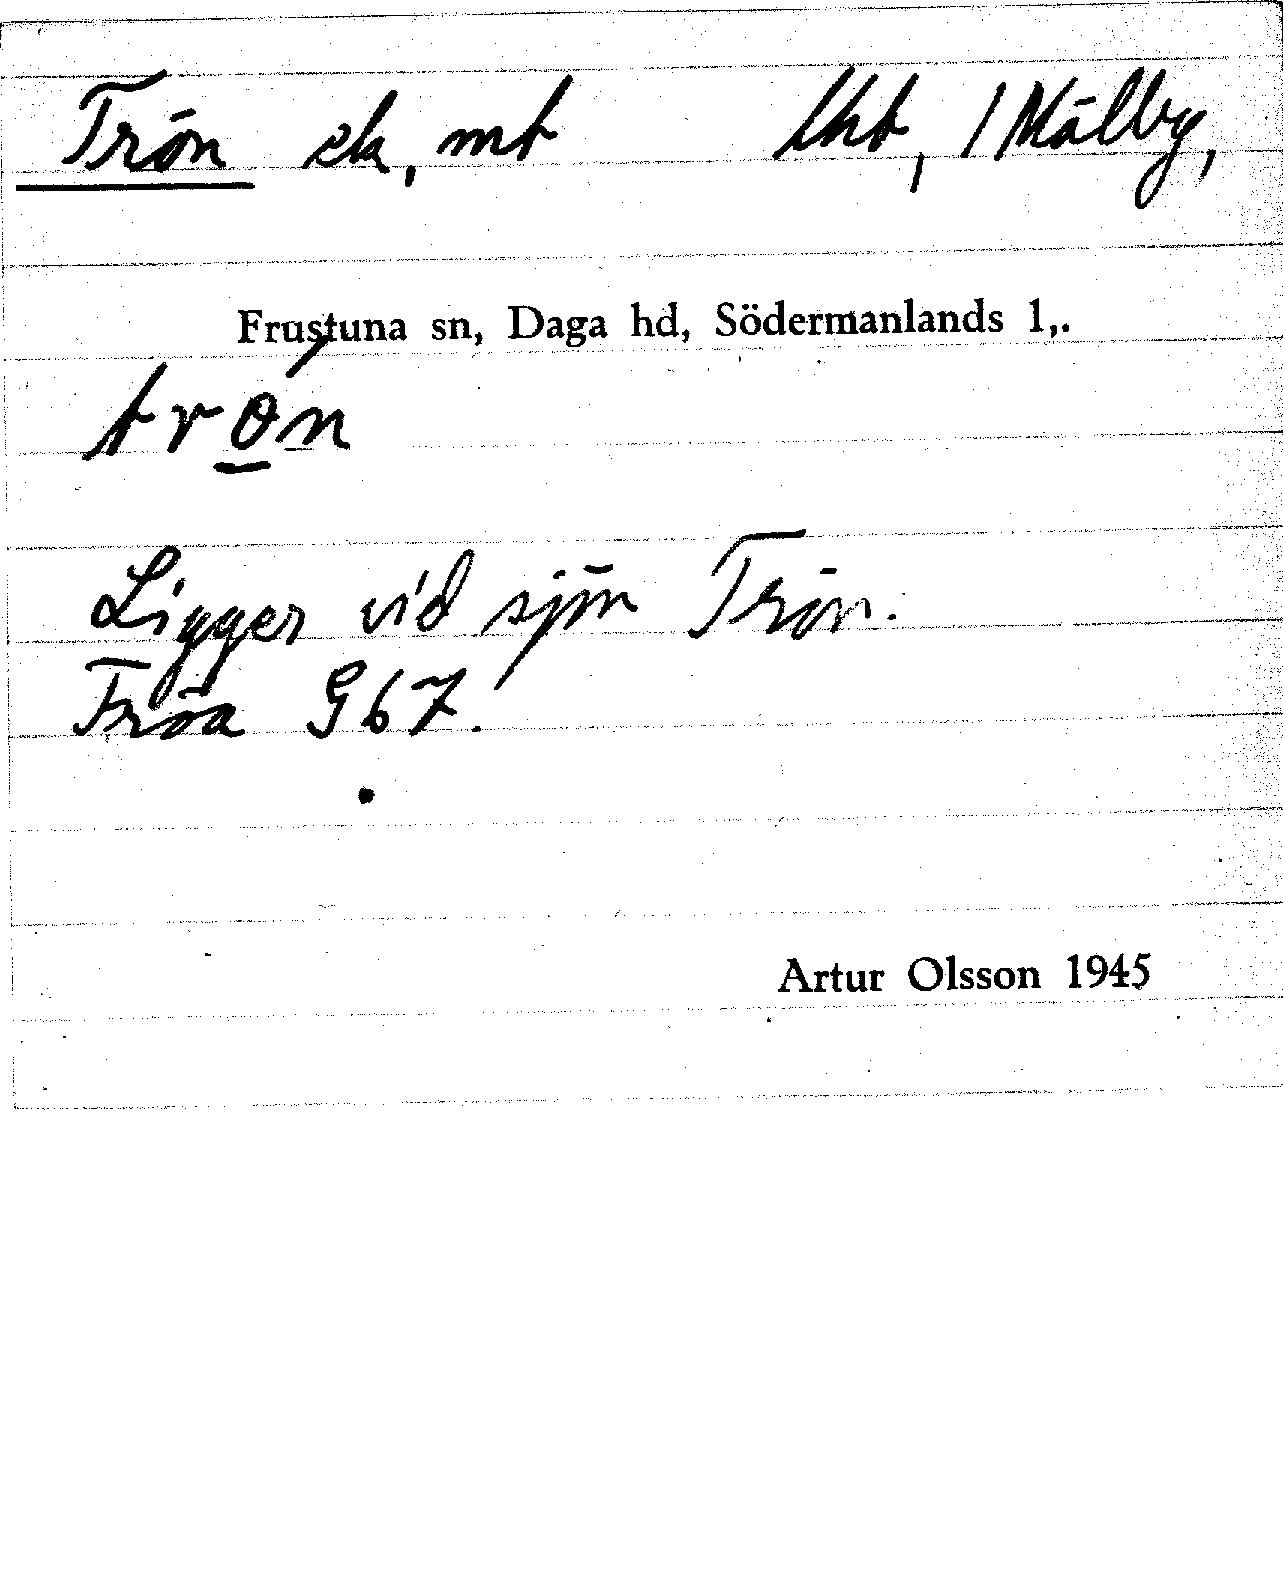 Trön ek, mt lht, 1 Målby,
Frustuna sn, Daga hd, Södermanlands l,.
trø̱n
Ligger vid sjön Trön.
Tröa G 67.
Artur Olsson 1945